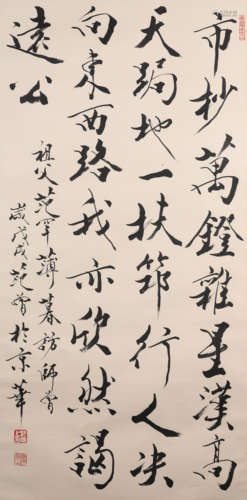 市抄萬鐙雜星漢高
天跼地一扶筇行人决
向東西路我亦欣然謁
遠公
祖父范罕薄暮訪師曾
歲戊戌范曾於京華